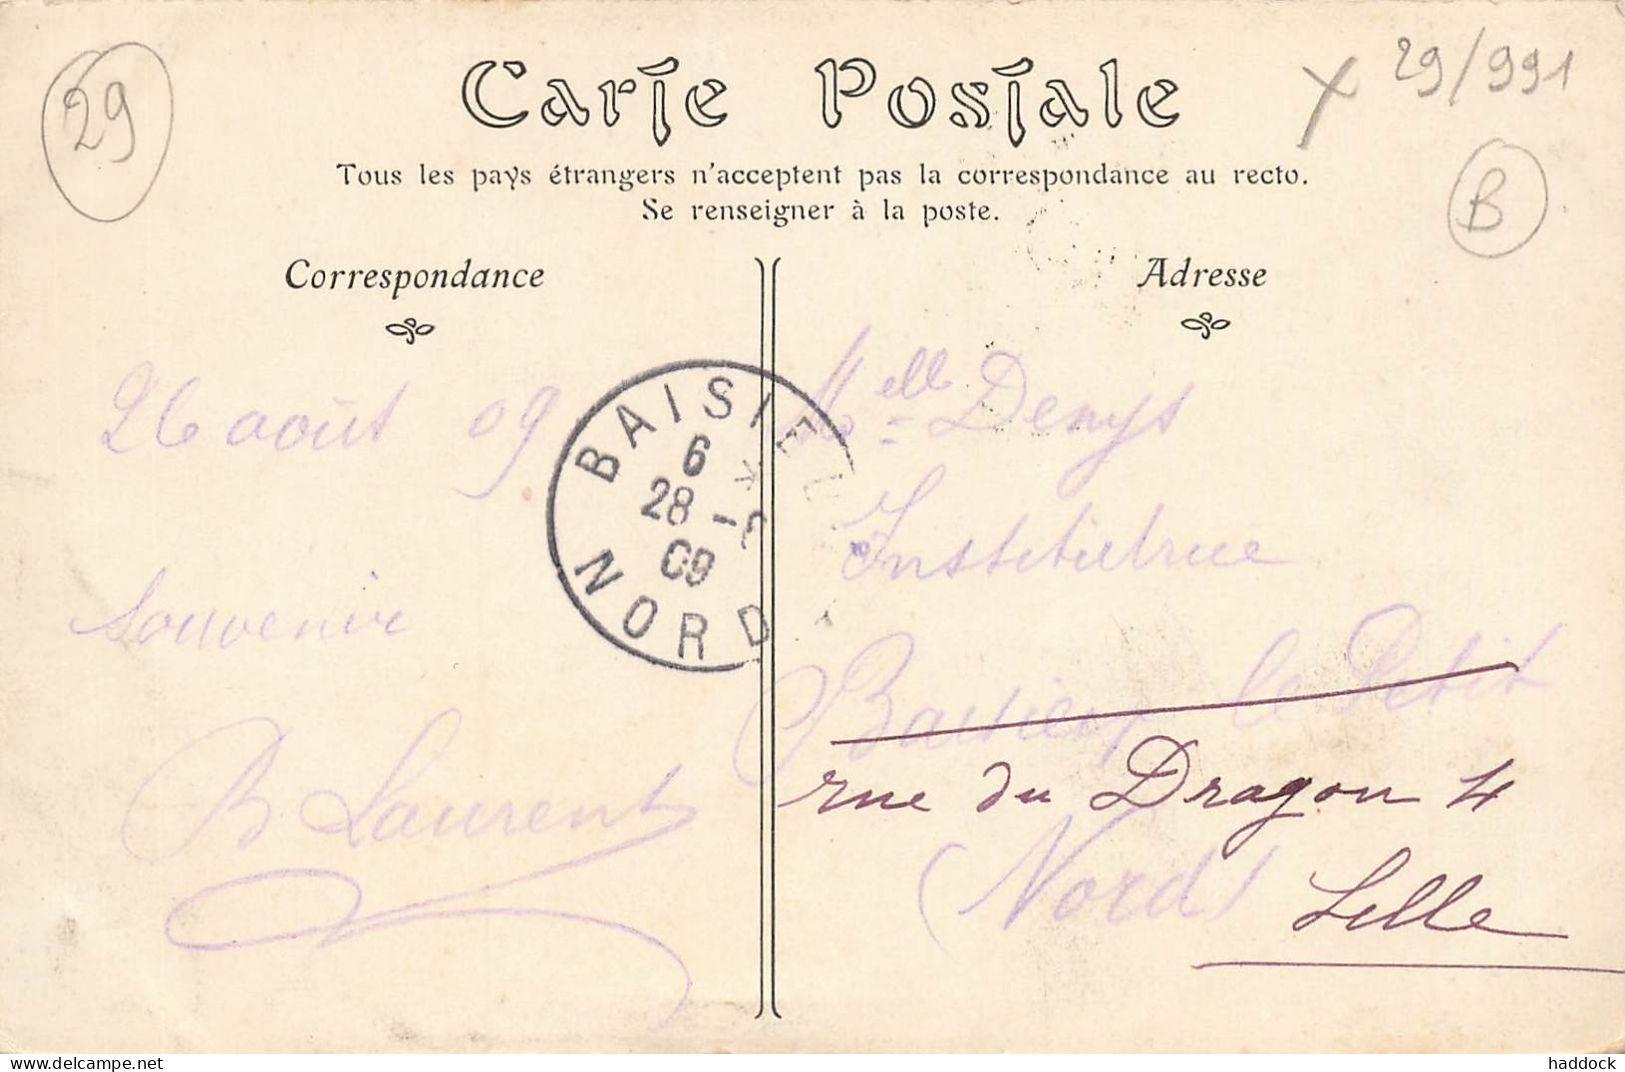 29
Carte Postale
X 29/991
B
Tous les pays étrangers n'acceptent pas la correspondance au recto.
Se renseigner à la poste.
Correspondance
26 août 09
Souvenir
B Laurent
BAISIEU
6
28 -8
09
NORD
Adresse
Melle Denys
Institutrice
Baisieux le Petit
rue du Dragon 4
(Nord)
Lille
haddock